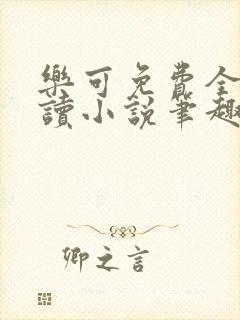 樂可免費全
讀小說筆趣
卿之言